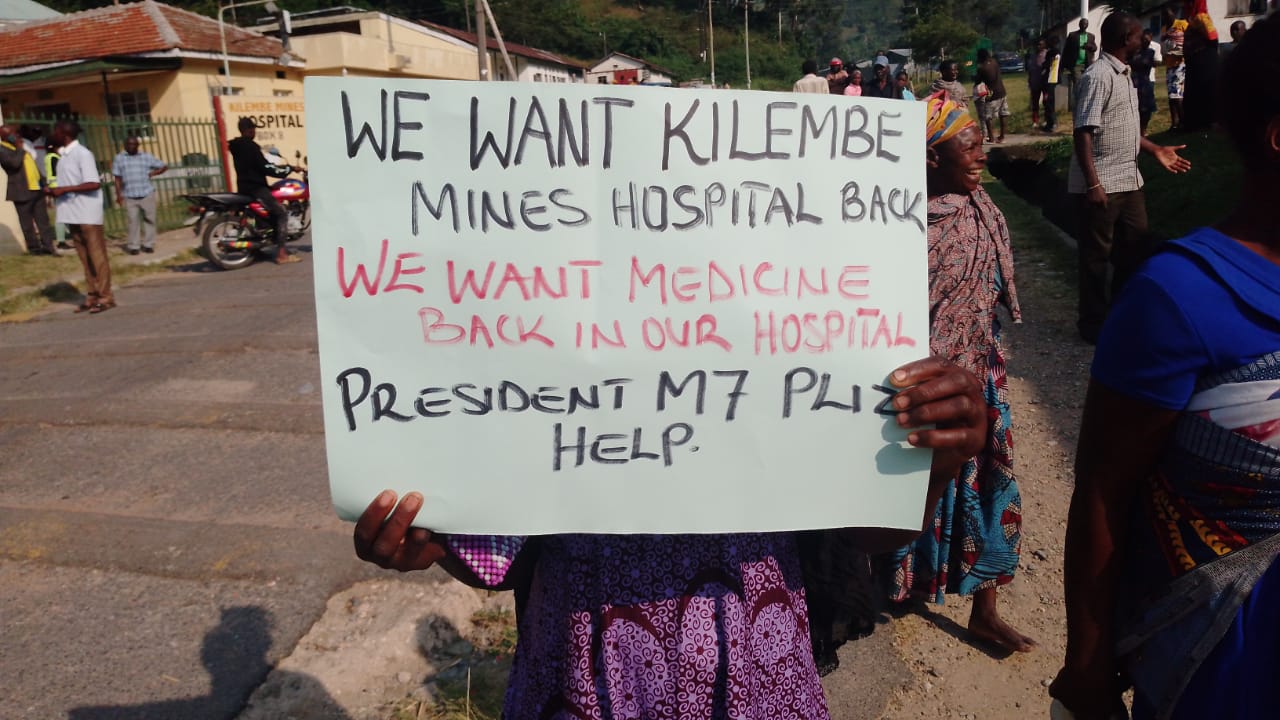 KILEMBE MINES
HOSPITAL
BOX 8
WE WANT KILEMBE
MINES HOSPITAL BACK
WE WANT MEDICINE
BACK IN OUR HOSPITAL
PRESIDENT M7 PLIZ
HELP.